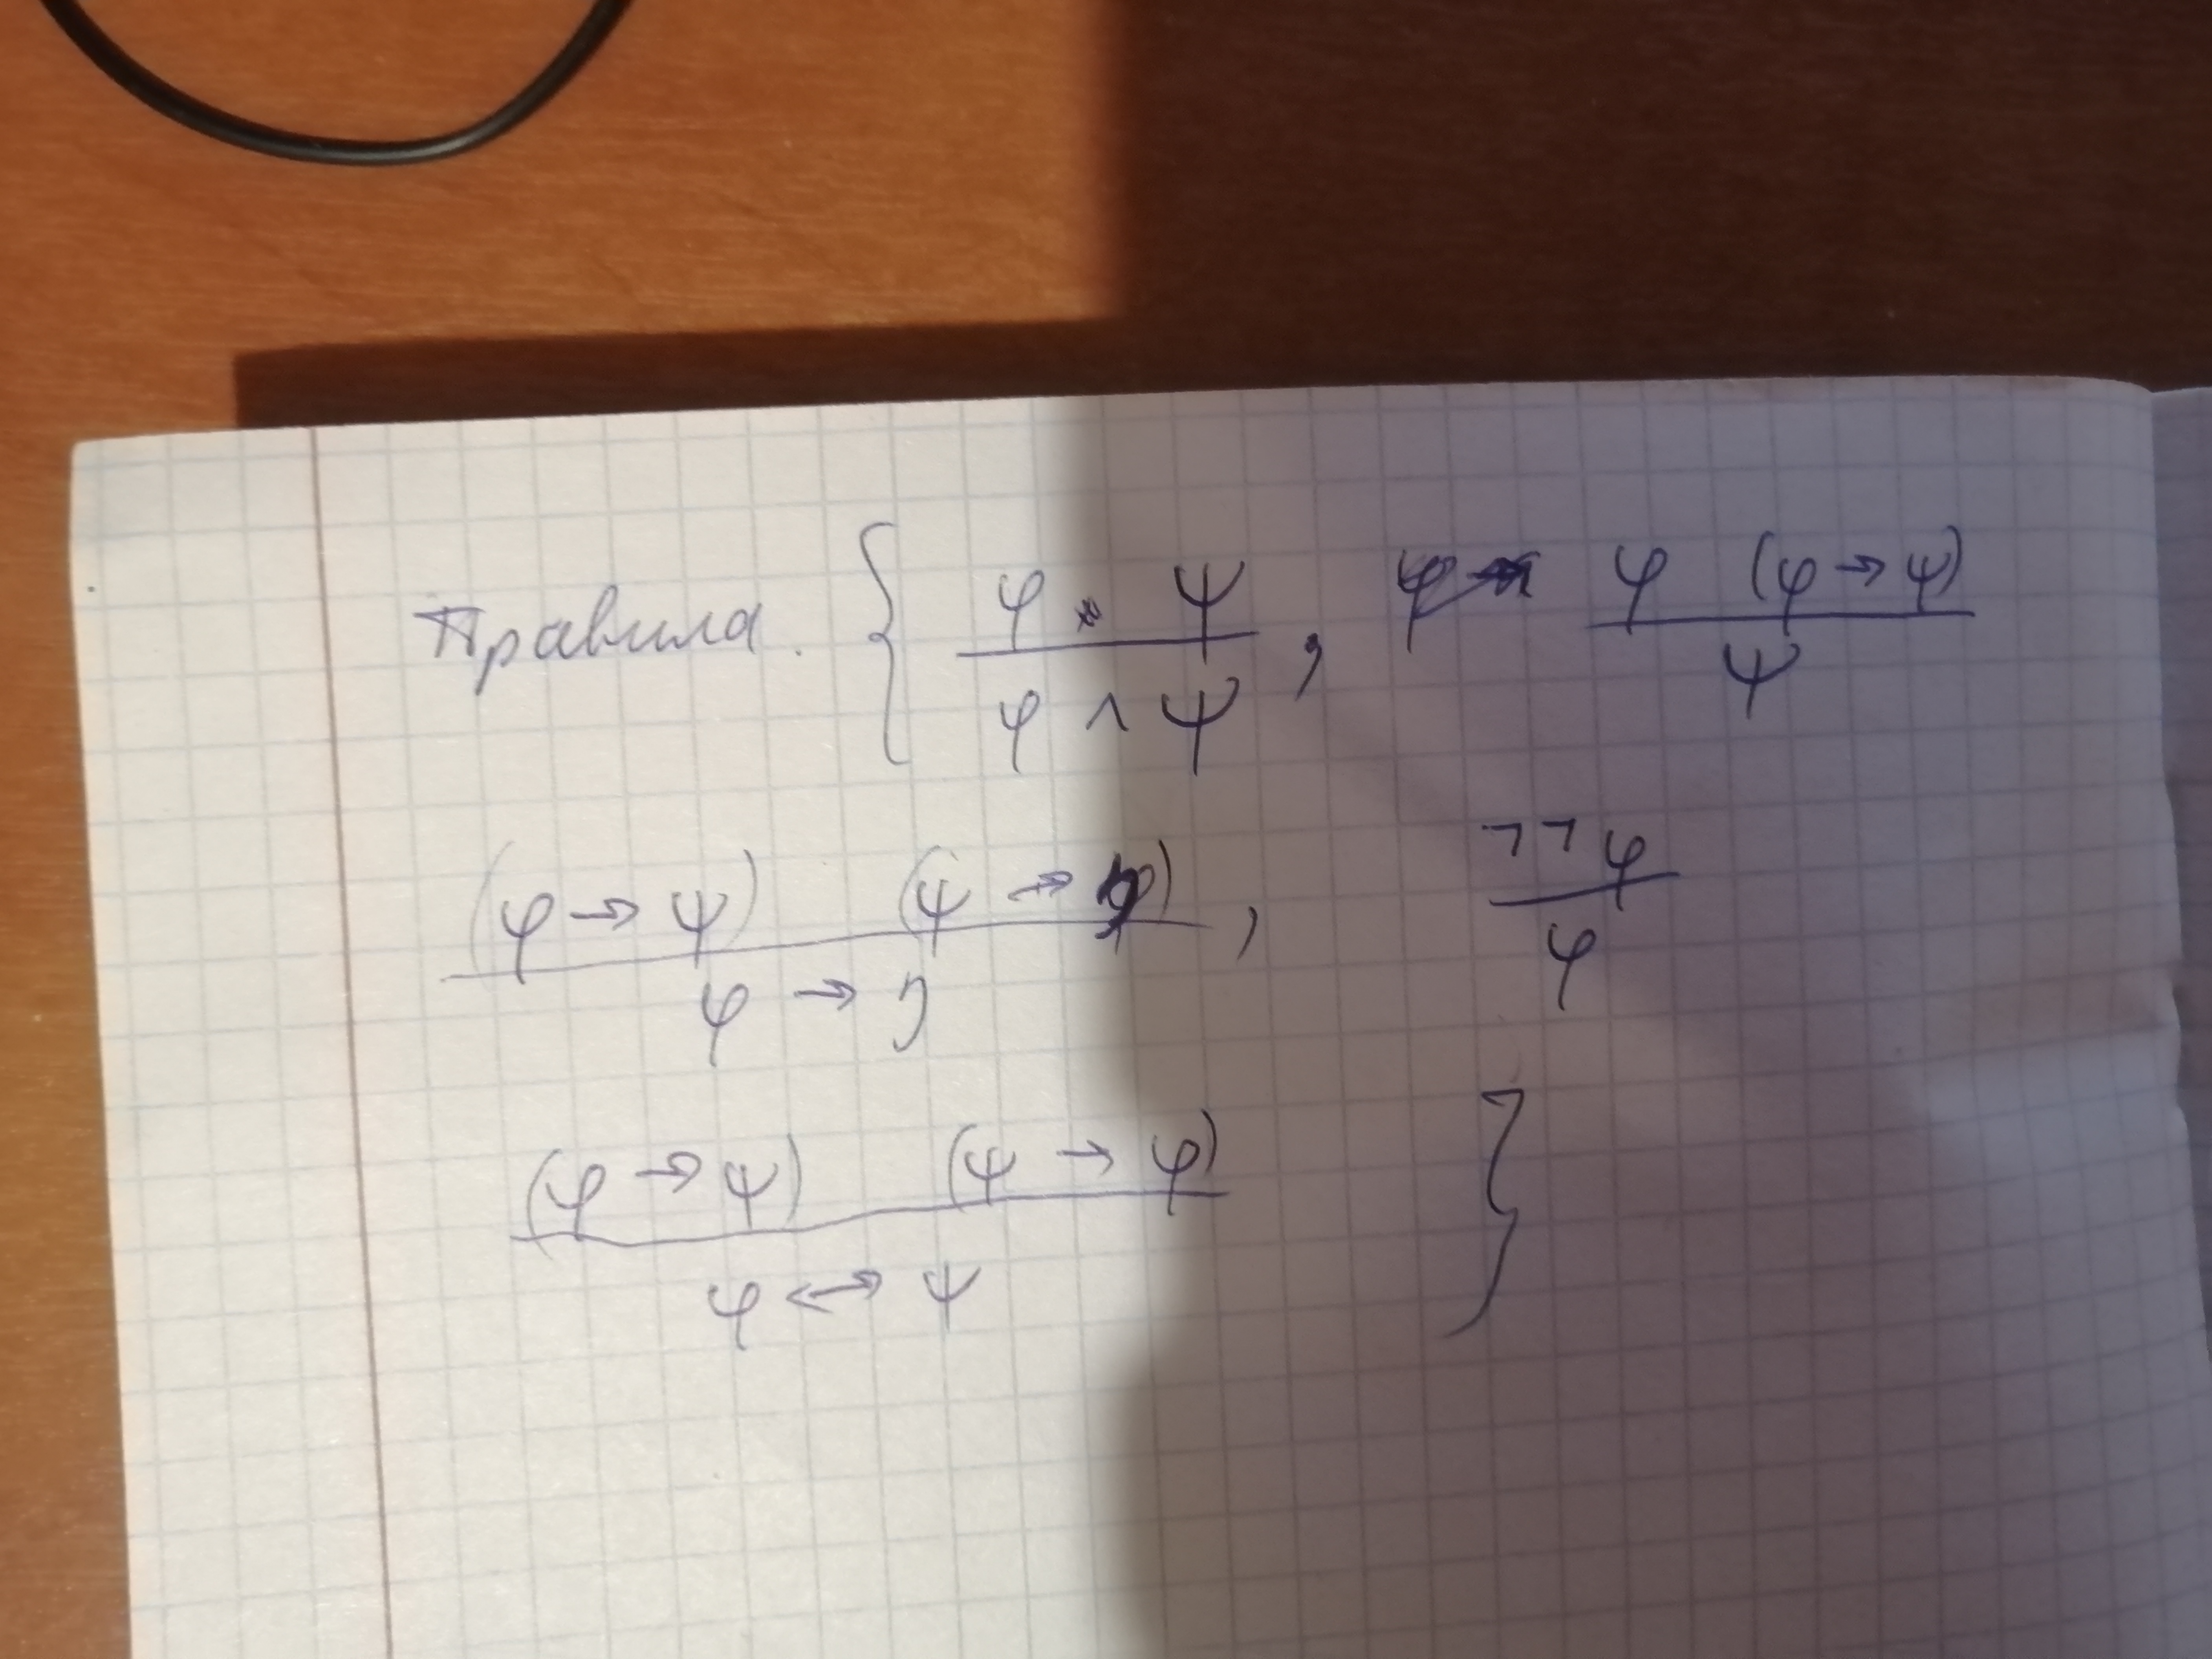 Правила. { φ ψ , φ (φ → ψ)
φ ∧ ψ ψ
(φ → ψ) (ψ → η) , ¬¬φ
φ → η φ
(φ → ψ) (ψ → φ) }
φ ↔ ψ